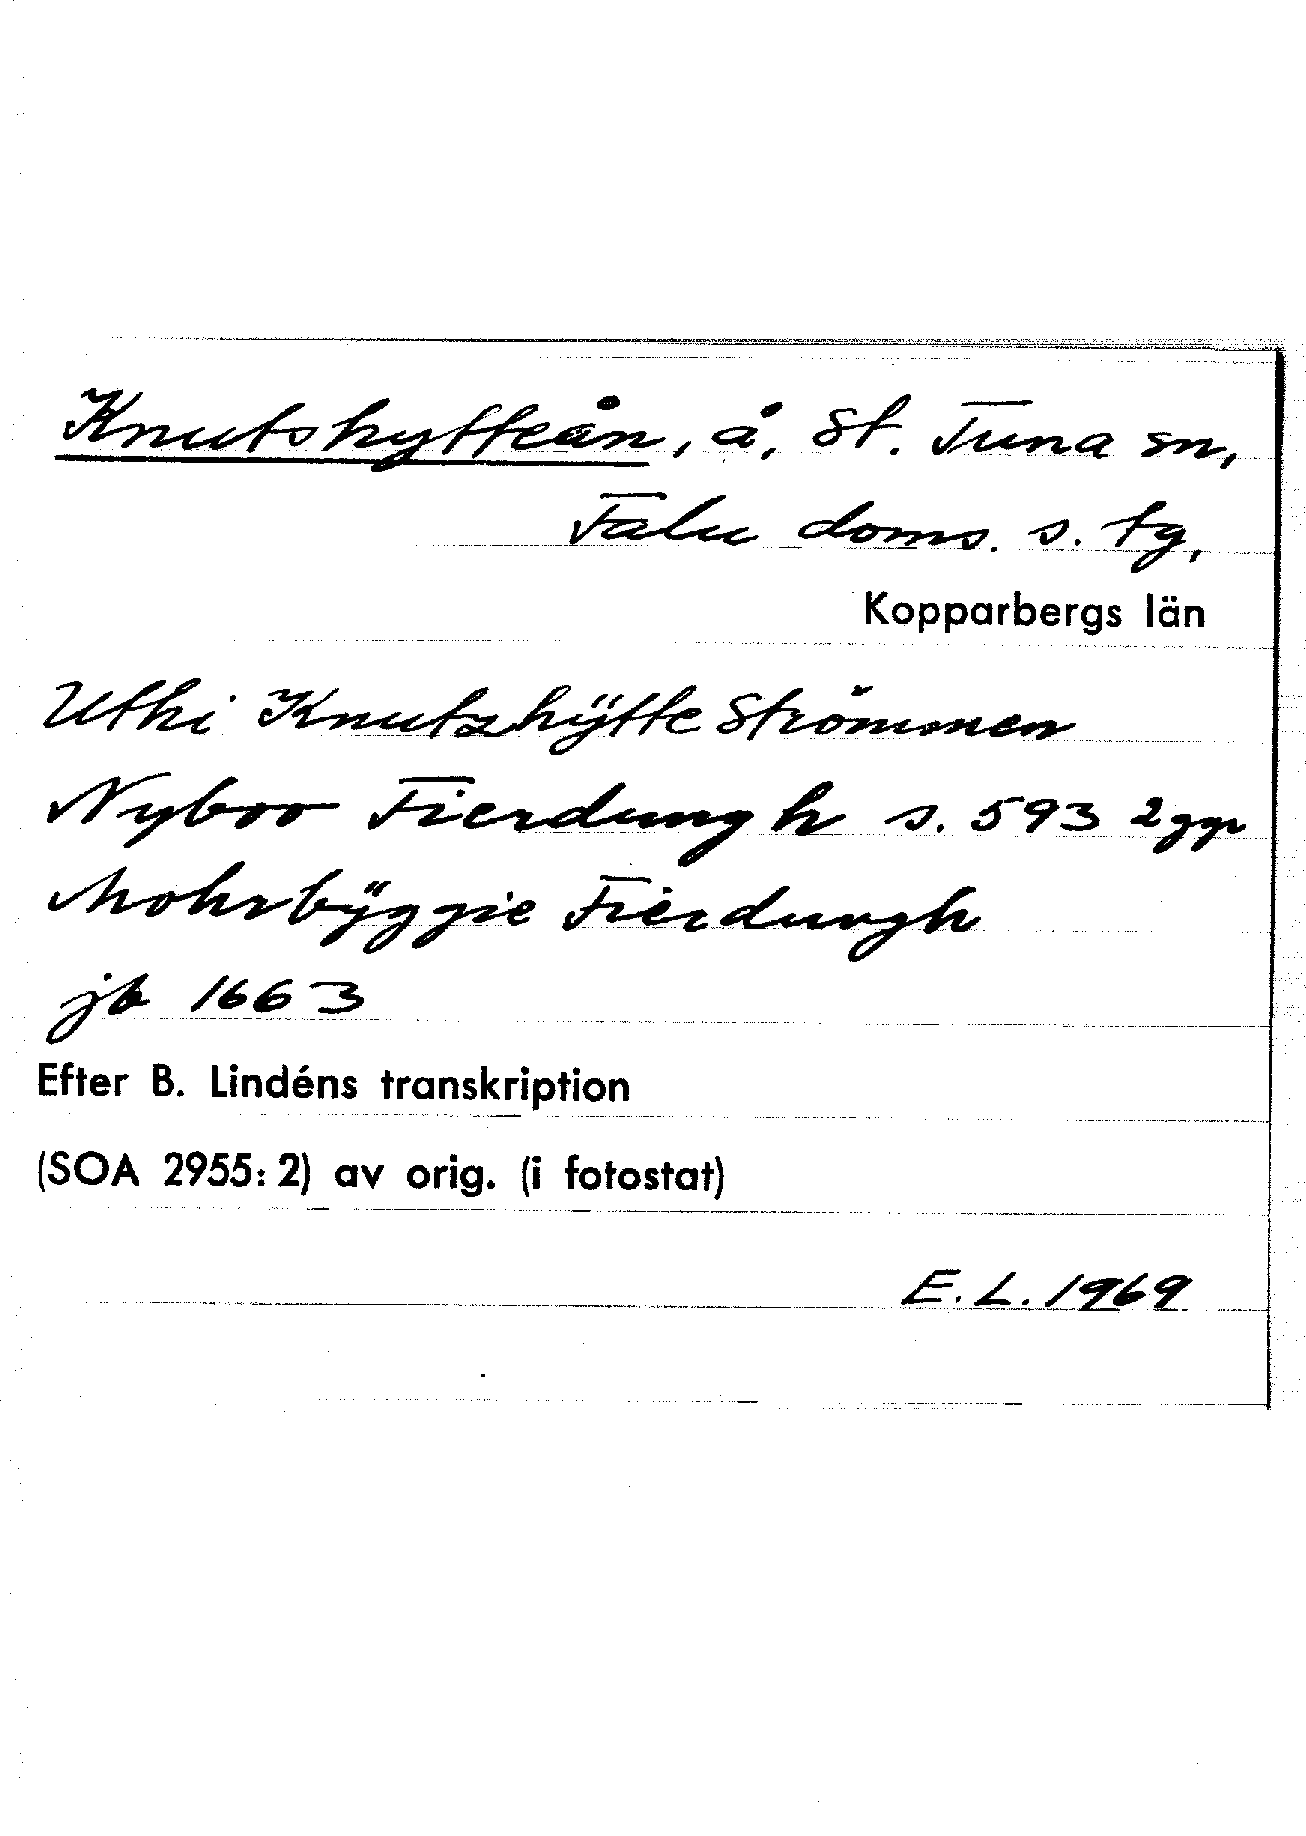 Knutshytteån, å, St. Tuna sn,
Falu doms. s. tg,
Kopparbergs län
Uthi Knutzhÿtte Strömmen
Nyboo Fierdungh s. 593 2 ggr
Mohrbÿggie Fierdungh
jb 1663
Efter B. Lindéns transkription
(SOA 2955:2) av orig. (i fotostat)
E.L. 1969